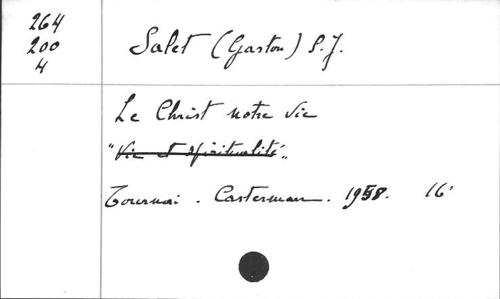 264
200
4
Salet (Gaston) S.J.
Le Christ notre vie
"Vie et spiritualité"
Tournai. Casterman. 1958. 16°